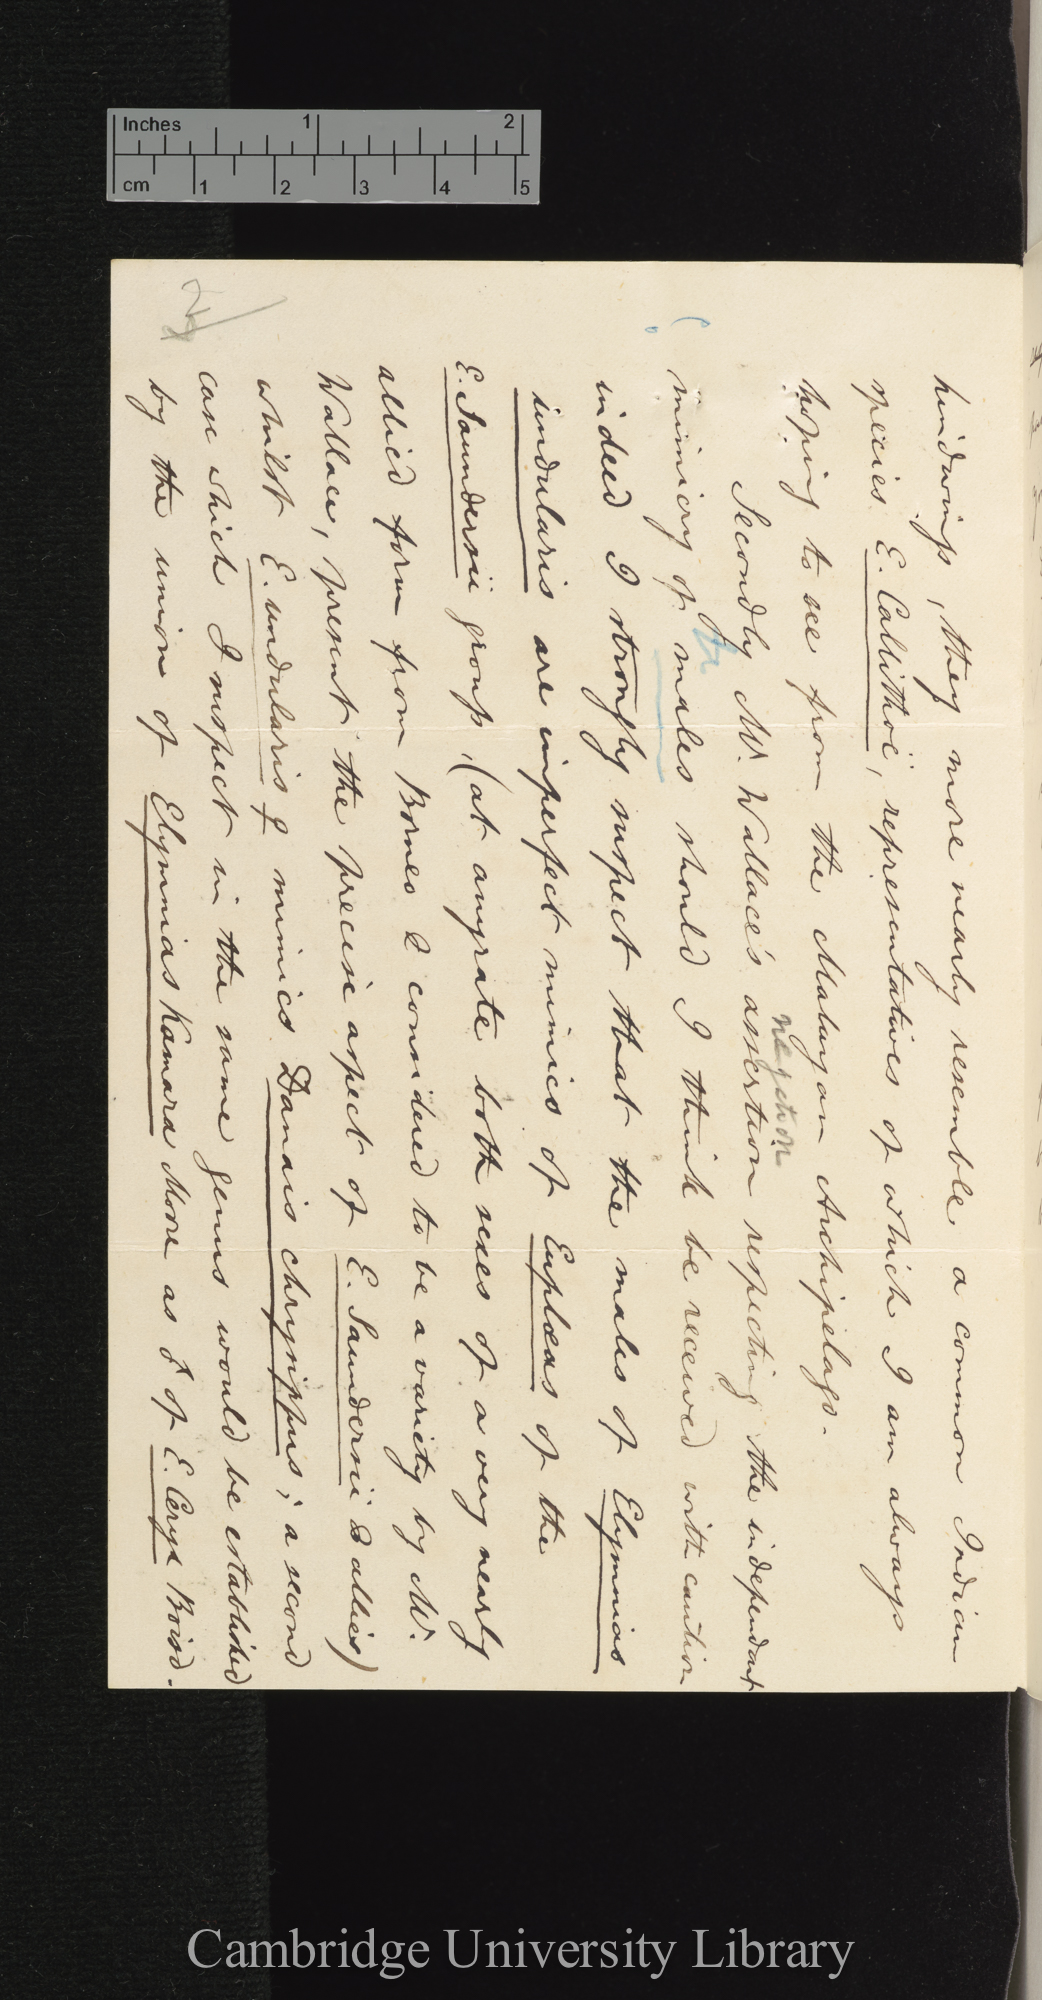 Inches 1 2
cm 1 2 3 4 5
hindwings, they more nearly resemble a common Indian
species E. Callithoë, representatives of which I am always
hoping to see from the Malayan Archipelago.
negation
Secondly Mr. Wallace's assertion respecting the independant
the
mimicry of males should I think be received with caution
indeed I strongly suspect that the males of Elymnias
undularis are imperfect mimics of Euplœas of the
E. Saundersii group, (at anyrate both sexes of a very nearly
allied form from Borneo & considered to be a variety by Mr.
Wallace, present the precise aspect of E. Saundersii & allies)
whilst E. undularis ♀ mimics Danais chrysippus; a second
case which I suspect in the same genus would be established
by the union of Elymnias Kamara Moore as ♂ of E. Ceryx Boisd.
Cambridge University Library